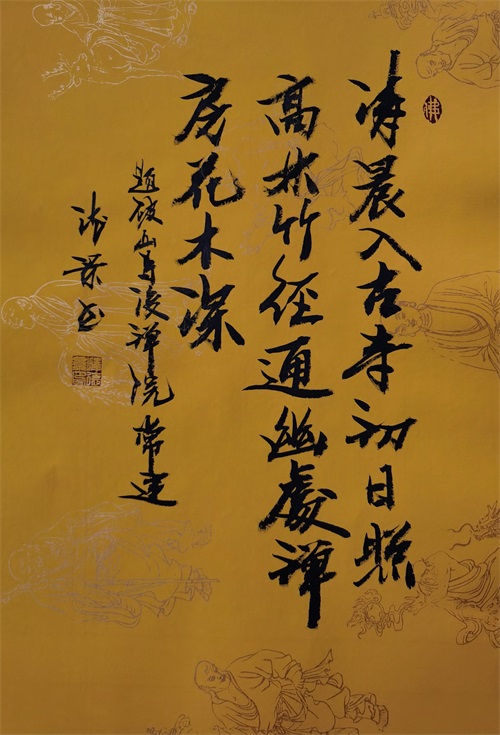 清晨入古寺初日照
高林竹径通幽处禅
房花木深
题破山寺后禅院常建